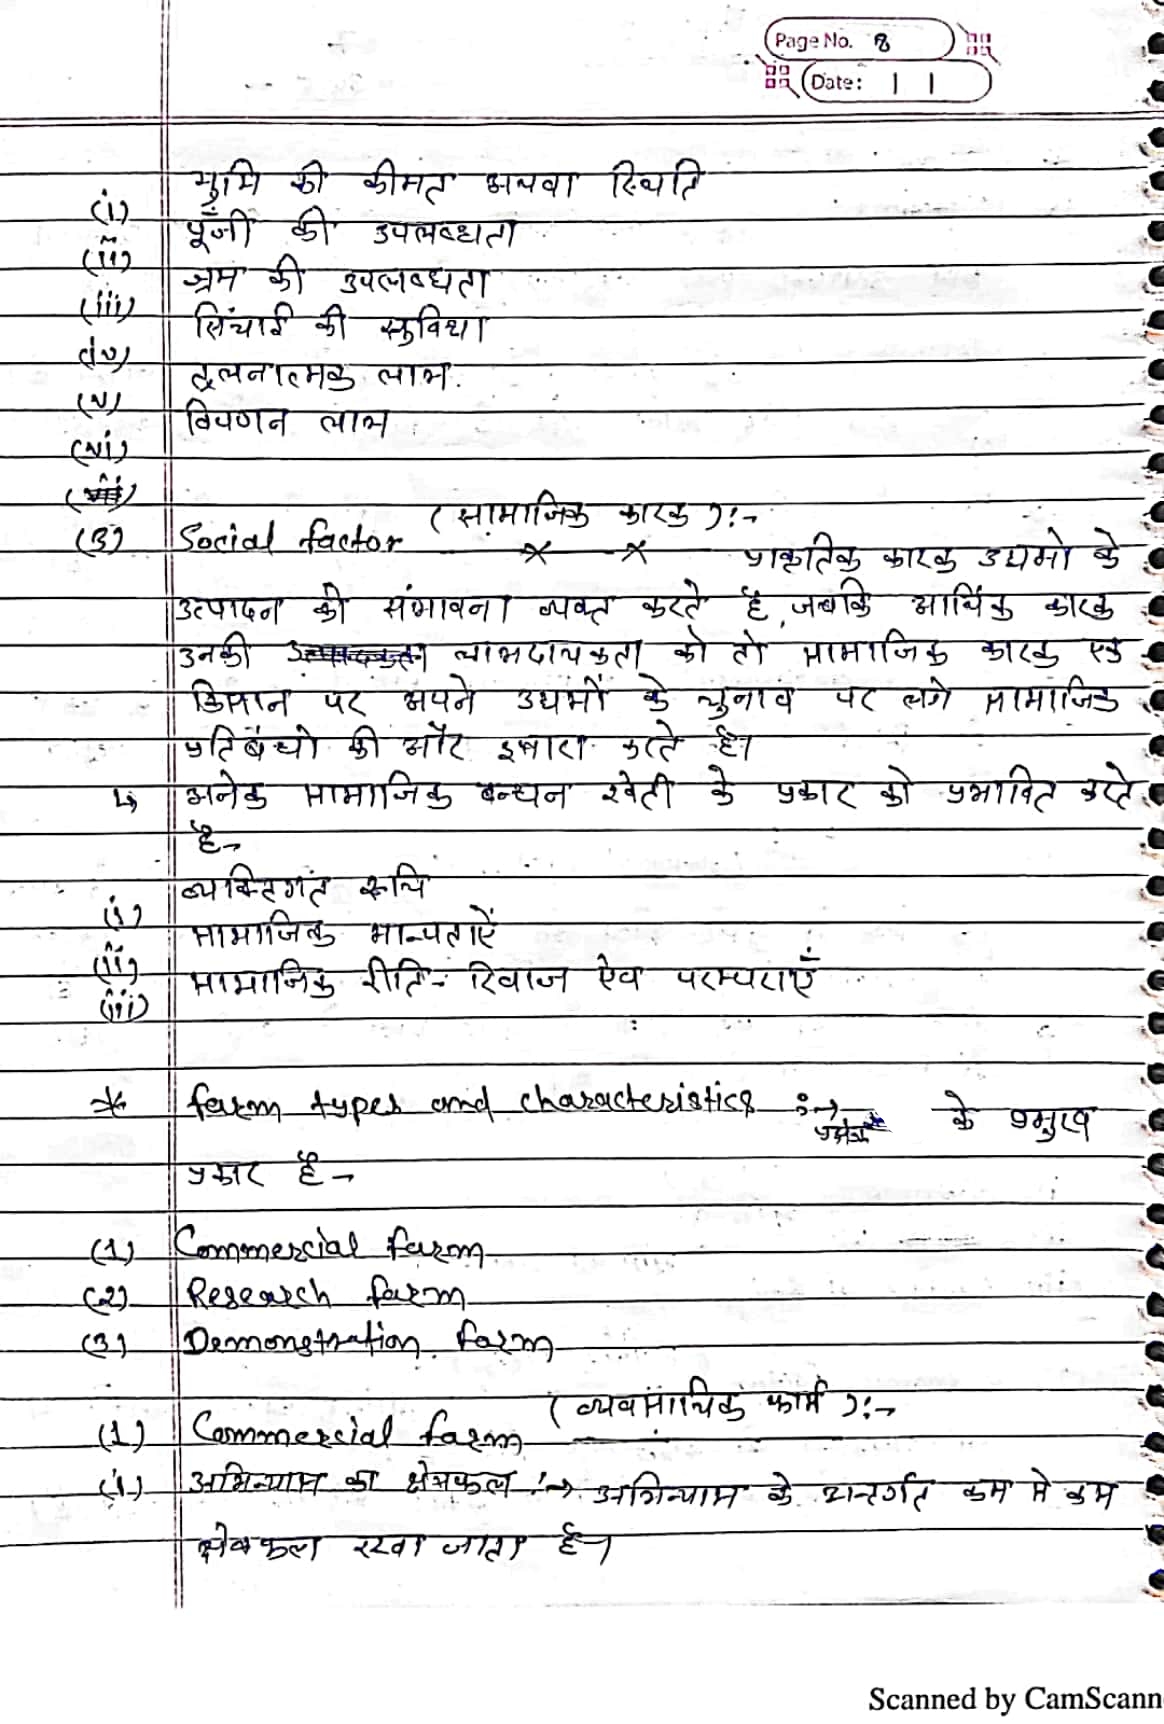 Page No. 8
Date: | |
(i) भुमि की कीमत अथवा स्थिति
(ii) पूँजी की उपलब्धता
(iii) श्रम की उपलब्धता
(iv) सिंचाई की सुविधा
(v) तुलनात्मक लाभ.
(vi) विपणन लाभ
(3) Social factor (सामाजिक कारक):-
प्राकृतिक कारक उद्यमो के
उत्पादन की संभावना व्यक्त करते है, जबकि आर्थिक कारक
उनकी लाभदायकता को तो सामाजिक कारक एक
किसान पर अपने उद्यमों के चुनाव पर लगे सामाजिक
प्रतिबंधो की और इसारा करते है।
↳ अनेक सामाजिक बन्धन खेती के प्रकार को प्रभावित करते
है→
(i) व्यक्तिगत रूचि
(ii) सामाजिक मान्यताऐं
(iii) सामाजिक रीति-रिवाज ऐव परम्पराएँ
* farm types and characteristics :→ प्रक्षेत्र के प्रमुख
प्रकार है→
(1) Commercial farm
(2) Research farm
(3) Demonstration farm
(1) Commercial farm (व्यवसायिक फार्म):→
(i) अभिन्यास का क्षेत्रफल :→ अभिन्यास के अन्तर्गत कम से कम
क्षेत्रफल रखा जाता है।
Scanned by CamScann